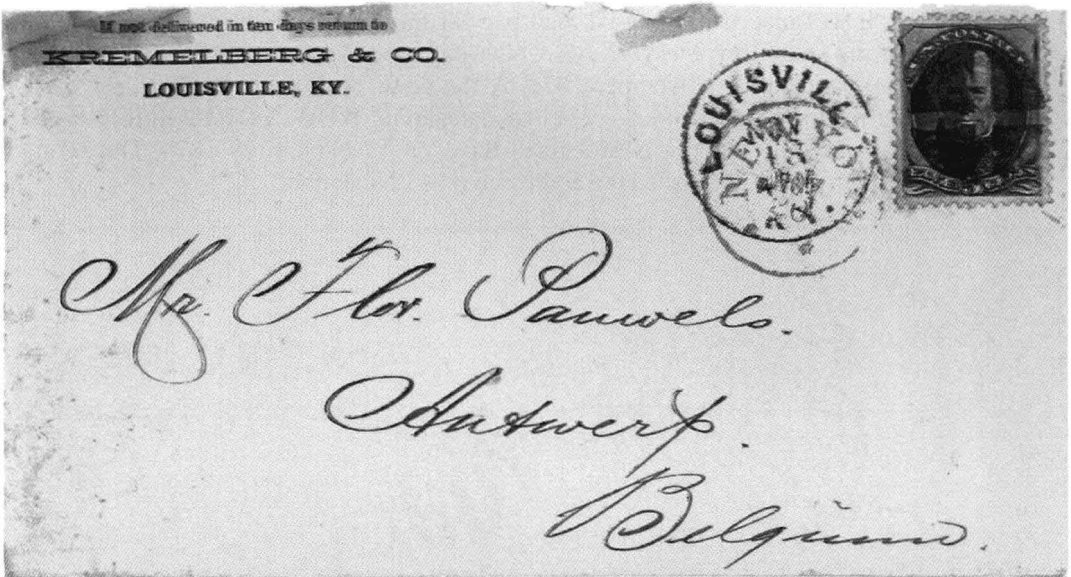 If not delivered in ten days return to
KREMELBERG & CO.
LOUISVILLE, KY.
LOUISVILL
NOV
15
KY.
NEW YO
Mr. Flor. Pauwels.
Antwerp.
Belgium.